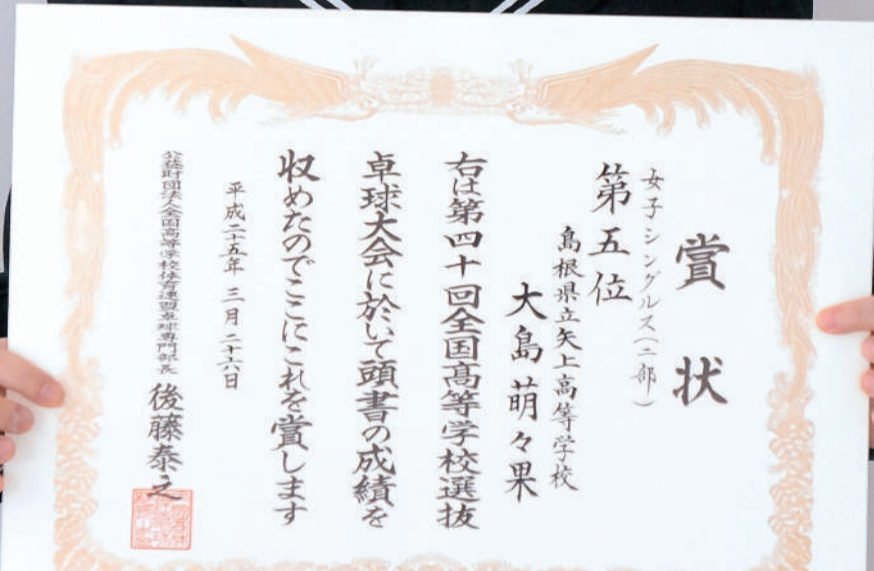 賞状
女子シングルス(二部)
第五位
島根県立矢上高等学校
大島萌々果
右は第四十回全国高等学校選抜
卓球大会に於いて頭書の成績を
収めたのでここにこれを賞します
平成二十五年 三月 二十六日
公益財団法人全国高等学校体育連盟卓球専門部長 後藤泰之